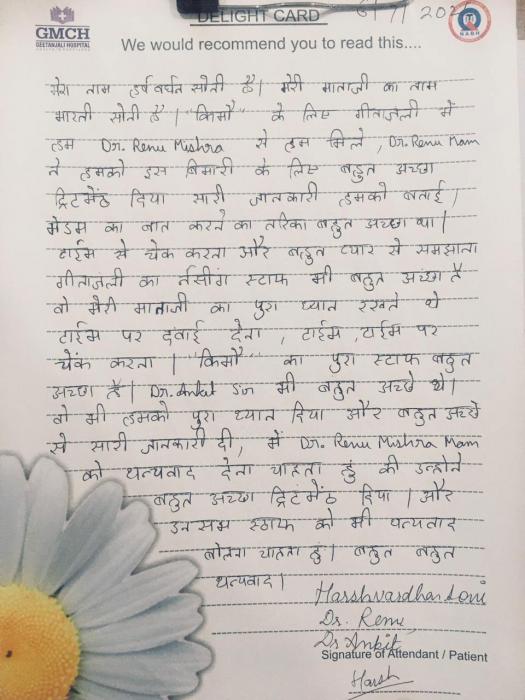 GMCH
GEETANJALI HOSPITAL
DELIGHT CARD
We would recommend you to read this....
मेरा नाम हर्ष वर्धन सोनी है। मेरी माताजी का नाम
भारती सोनी है। "किमो" के लिए गीतांजली में
हम Dr. Renu Mishra से हम मिले, Dr. Renu Mam
ने हमको इस बिमारी के लिए बहुत अच्छा
ट्रिटमेंठ दिया सारी जानकारी हमको बताई।
मेडम का बात करने का तरिका बहुत अच्छा था।
टाईम से चेक करना और बहुत प्यार से समझाना
गीतांजली का र्नसींग स्टाफ भी बहुत अच्छा है
वो मेरी माताजी का पुरा ध्यान रखते थे
टाईम पर दवाई देना, टाईम, टाईम पर
चेंक करना। "किमो" का पुरा स्टाफ बहुत
अच्छा है। Dr. Ankit Sir भी बहुत अच्छे थे।
वो भी हमको पुरा ध्यान दिया और बहुत अच्छे
से सारी जानकारी दी, में Dr. Renu Mishra Mam
को धन्यवाद देना चाहता हुं की उन्होने
बहुत अच्छा ट्रिटमेंठ दिया। और
उन सभ स्ठाफ को भी धन्यवाद
बोलना चाहता हुं। बहुत बहुत
धन्यवाद।
Harshvardhan Soni
Dr. Renu
Dr Ankit
Signature of Attendant / Patient
Harsh